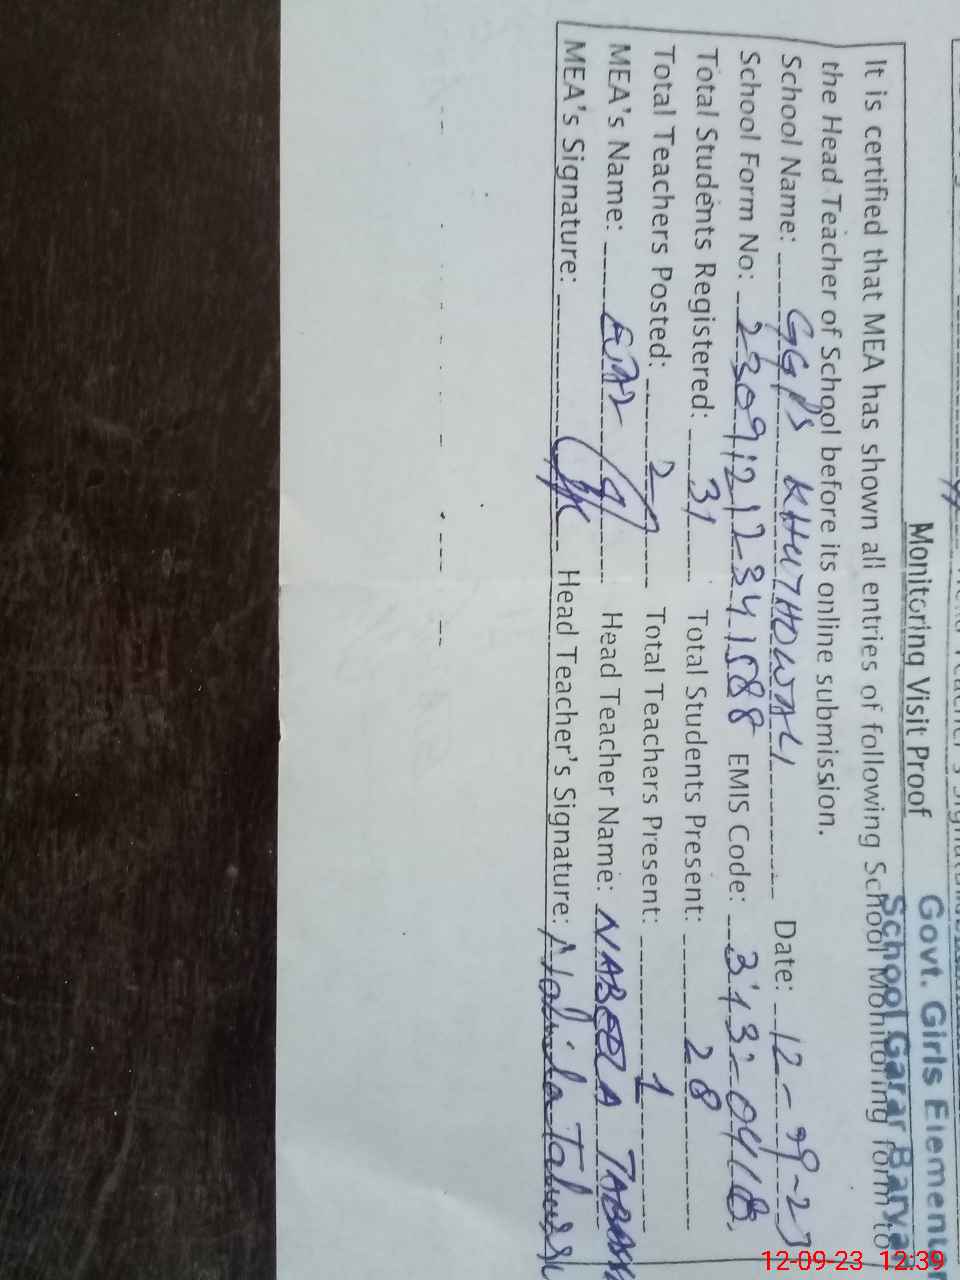 Monitoring Visit Proof
Govt. Girls Elementar
School Garar Baryar
It is certified that MEA has shown all entries of following School Monitoring form to
the Head Teacher of School before its online submission.
School Name: GGPS KHUTHOWALI Date: 12-09-23
School Form No: 23091212341588 EMIS Code: 31320418
Total Students Registered: 31 Total Students Present: 28
Total Teachers Posted: 2 Total Teachers Present: 1
MEA's Name: Head Teacher Name: NABEELA TABASS
MEA's Signature: Head Teacher's Signature:
12-09-23 12:39